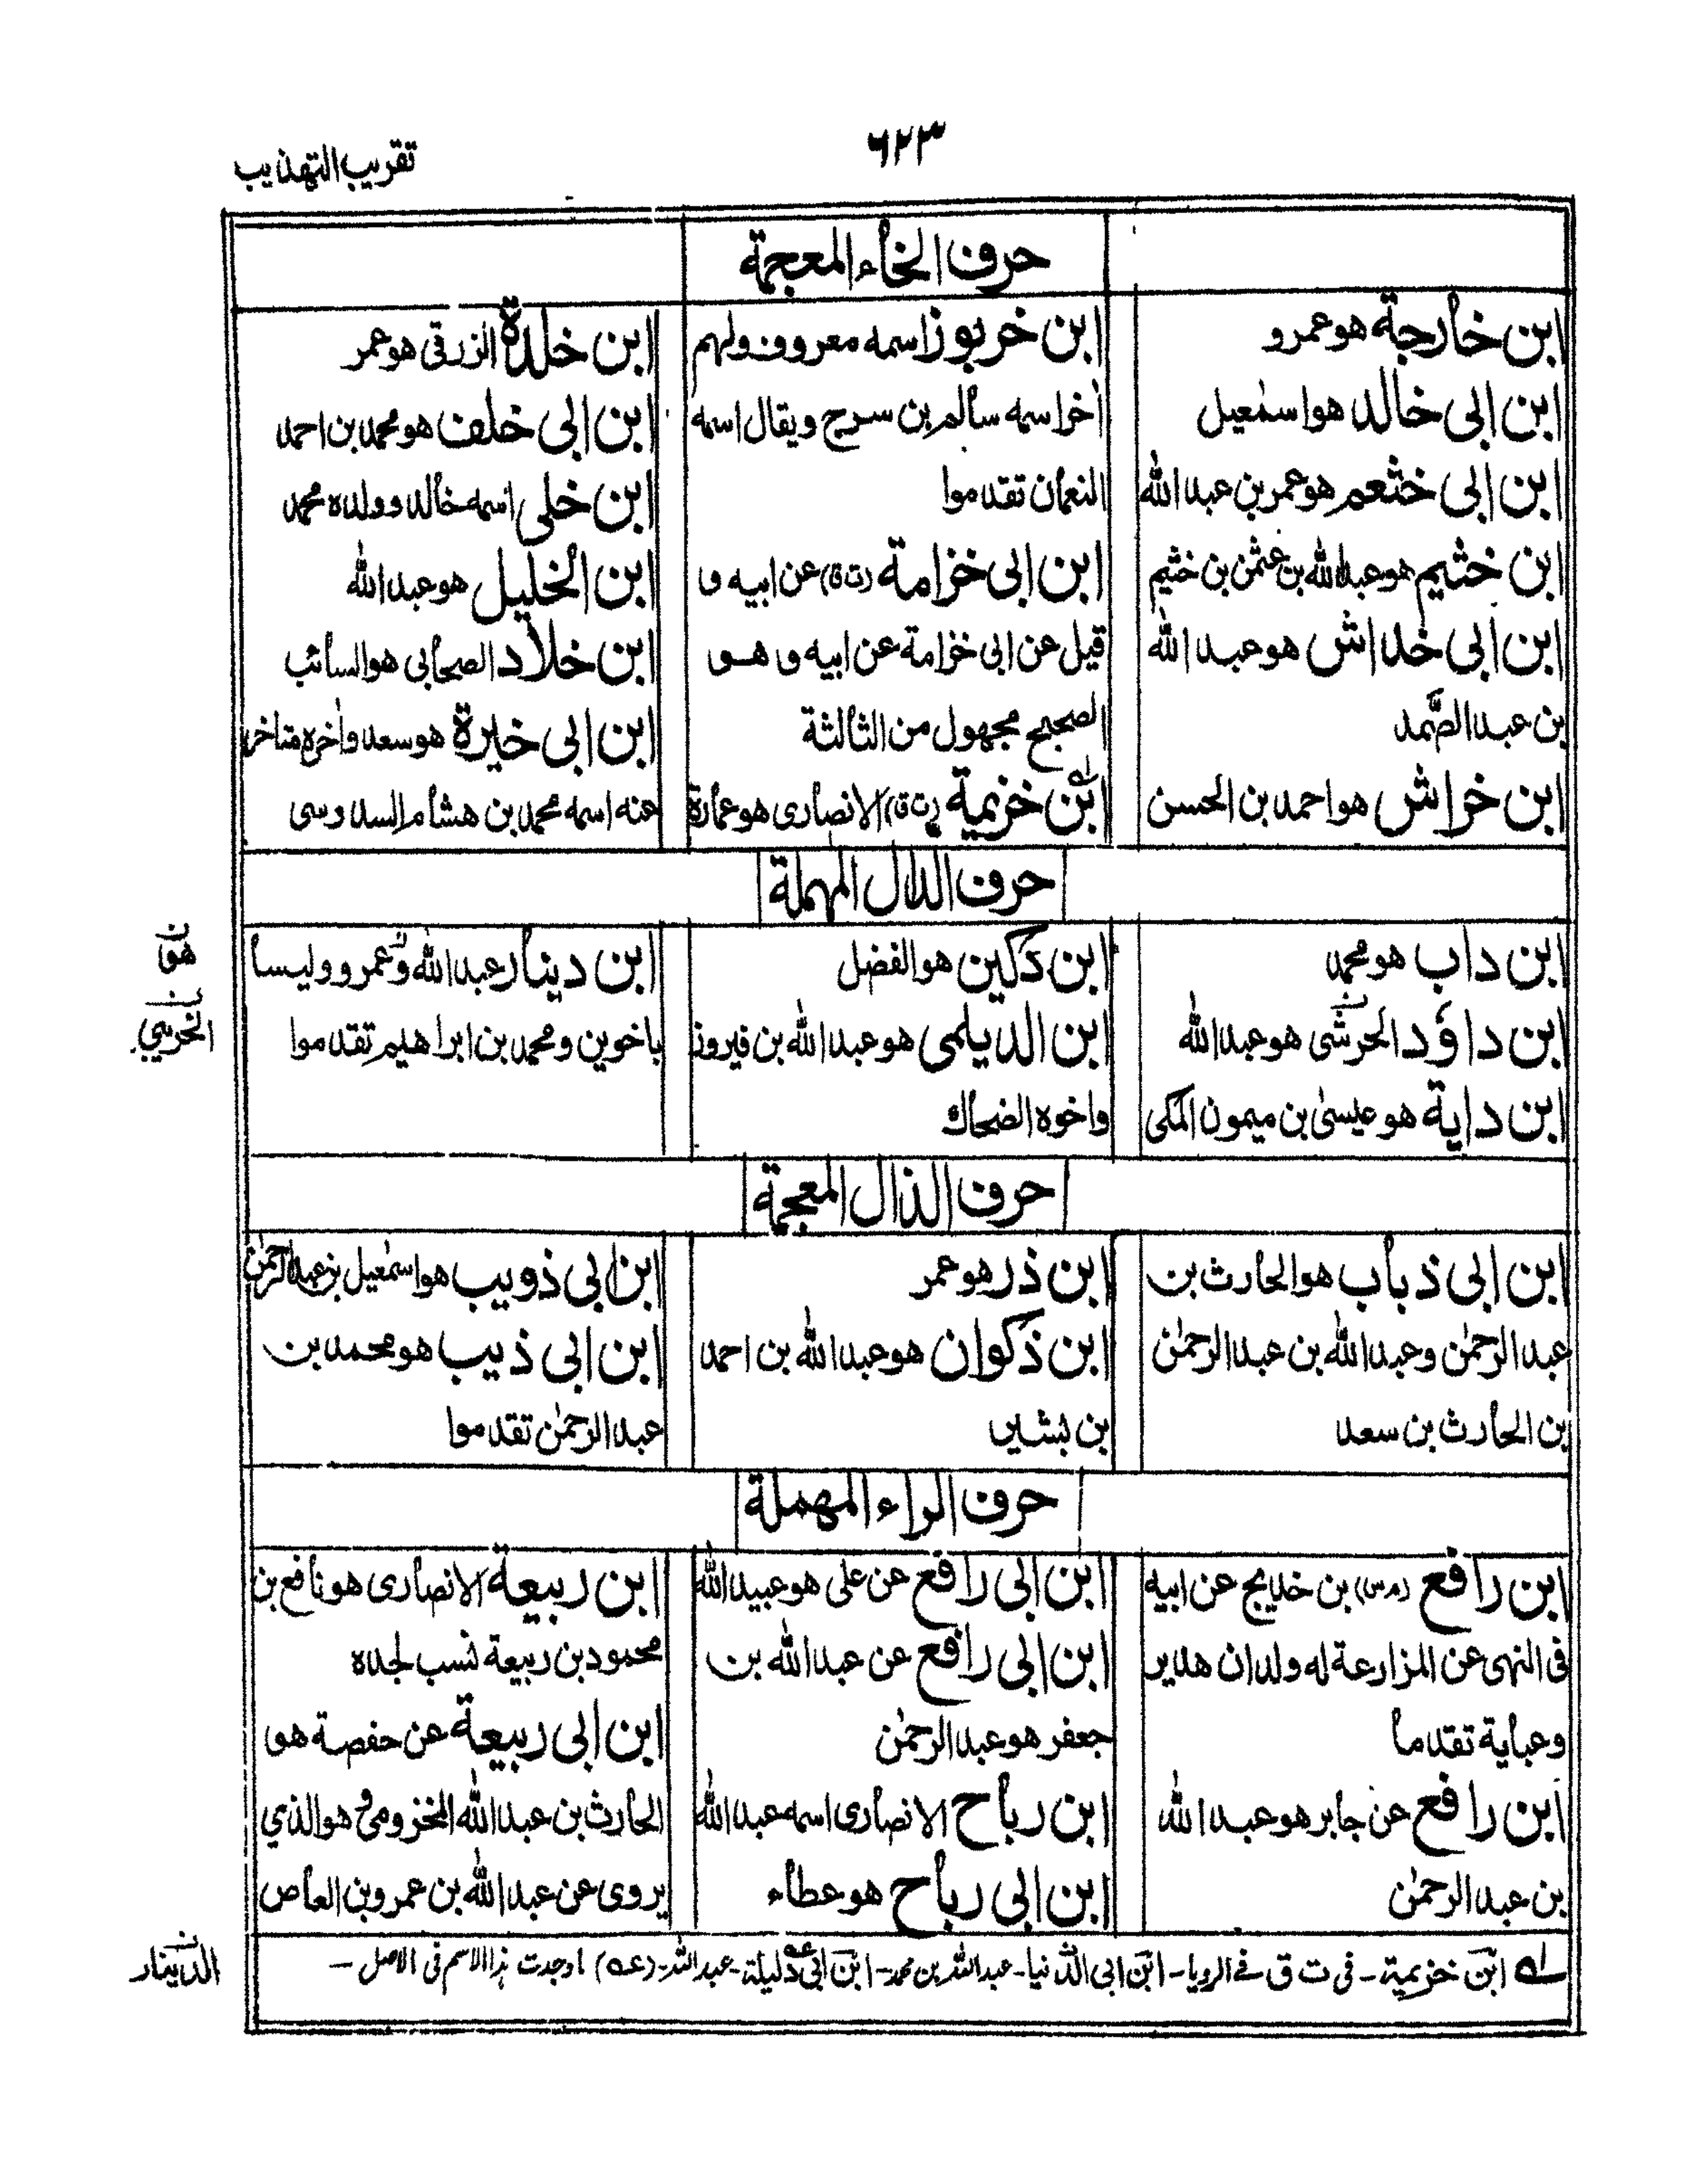 تقريب التهذيب
٦٢٣
حرف الخاء المعجمة
ابن خارجة هو عمرو
ابن ابى خالد هو اسمٰعيل
ابن ابى خثعم هو عمر بن عبد الله
ابن خثيم هو عبد الله بن عثمٰن بن خثيم
ابن ابى خداش هو عبد الله
بن عبد الصمد
ابن خراش هو احمد بن الحسن
ابن خربوز اسمه معروف ولهم
اٰخر اسمه سالم بن سرج ويقال اسمه
النعمان تقدموا
ابن ابى خزامة (ت ق) عن ابيه و
قيل عن ابى خزامة عن ابيه و هو
الصحيح مجهول من الثالثة
ابن خزيمة (ت ق) الانصارى هو عمارة
ابن خلدة الزرقى هو عمر
ابن ابى خلف هو محمد بن احمد
ابن خلى اسمه خالد وولده محمد
ابن الخليل هو عبد الله
ابن خلاد الصحابى هو السائب
ابن ابى خيرة هو سعد واٰخره متاخر
عنه اسمه محمد بن هشام السدوسى
حرف الدال المهملة
ابن داب هو محمد
ابن داؤد الحرشى هو عبد الله
ابن داية هو عيسىٰ بن ميمون المكى
ابن دكين هو الفضل
ابن الديلمى هو عبد الله بن فيروز
واخوه الضحاك
ابن دينار عبد الله وعمرو وليسا
باخوين ومحمد بن ابراهيم تقدموا
هو
الخريبي
حرف الذال المعجمة
ابن ابى ذباب هو الحارث بن
عبد الرحمٰن وعبد الله بن عبد الرحمٰن
بن الحارث بن سعد
ابن ذر هو عمر
ابن ذكوان هو عبد الله بن احمد
بن بشير
ابن ابى ذويب هو اسمٰعيل بن عبد الرحمٰن
ابن ابى ذيب هو محمد بن
عبد الرحمٰن تقدموا
حرف الراء المهملة
ابن رافع (م س) بن خديج عن ابيه
فى النهى عن المزارعة له ولدان هدير
وعباية تقدما
ابن رافع عن جابر هو عبد الله
بن عبد الرحمٰن
ابن ابى رافع عن على هو عبيد الله
ابن ابى رافع عن عبد الله بن
جعفر هو عبد الرحمٰن
ابن رباح الانصارى اسمه عبد الله
ابن ابى رباح هو عطاء
ابن ربيعة الانصارى هو نافع بن
محمود بن ربيعة نسب لجده
ابن ابى ربيعة عن حفصة هو
الحارث بن عبد الله المخزومى وهو الذي
يروى عن عبد الله بن عمرو بن العاص
ابن خزيمة - فى ت ق فے الرويا - ابن ابى الدنيا - عبد الله بن محمد - ابن ابى دليلة - عبد الله - (عه) ما وجدت هذا الاسم فى الاصل -
الدينار